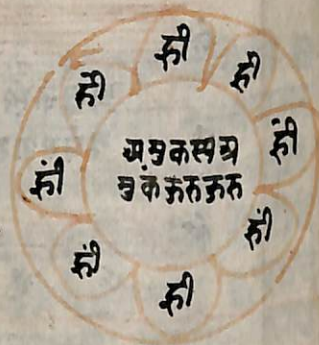 ह्रीं
ह्रीं
ह्रीं
ह्रीं
ह्रीं
ह्रीं
ह्रीं
ह्रीं
अमुकस्यअ
मुकंकुरुकुरु